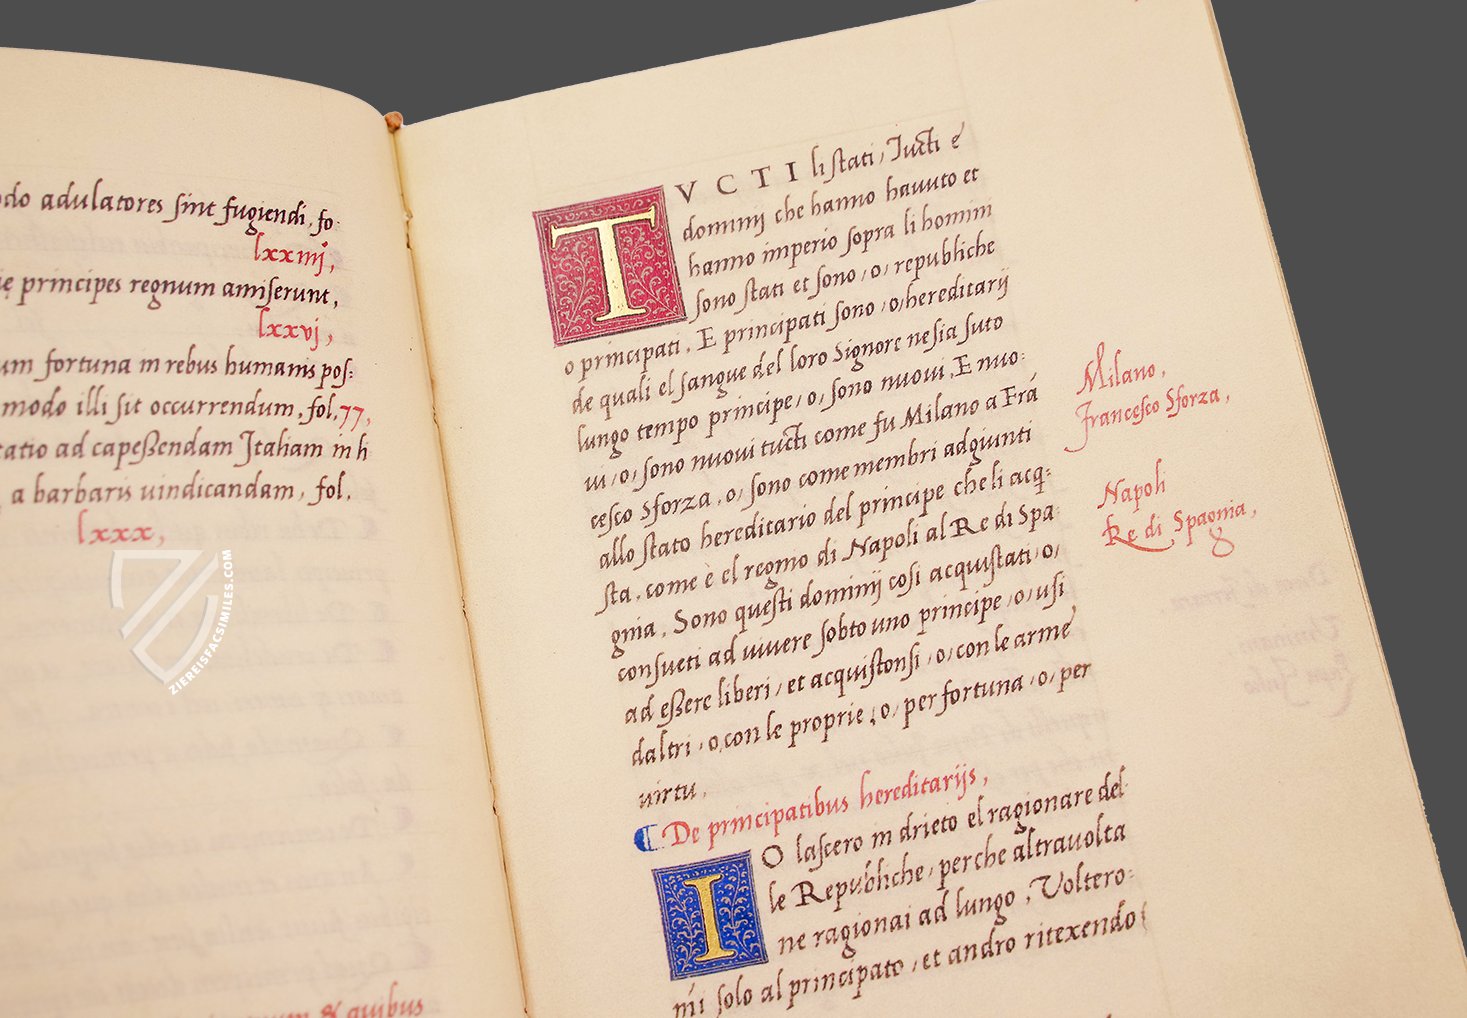 do adulatores sint fugiendi, fo:
lxxiiij,
principes regnum amiserunt,
lxxvj,
um fortuna in rebus humanis pos:
modo illi sit occurrendum, fol, 77,
tatio ad capeßendam Italiam in li
a barbaris uindicandam, fol,
lxxx,
& quibus
TVCTI li stati, Tucti e
dominij che hanno hauuto et
hanno imperio sopra li homini
sono stati et sono, o, republiche
o principati, E principati sono, o, hereditarij
de quali el sangue del loro Signore ne sia suto
lungo tempo principe, o, sono nuoui, E nuo:
ui, o, sono nuoui tucti come fu Milano a Frã
cesco Sforza, o, sono come membri adgiunti
allo stato hereditario del principe che li acq:
sta, come è el regno di Napoli al Re di Spa:
gnia, Sono questi dominij cosi acquistati, o,
consueti ad uiuere sobto uno principe, o, usi
ad eßere liberi, et acquistonsi, o, con le arme
daltri, o, con le proprie, o, per fortuna, o, per
uirtu,
Milano,
Francesco Sforza,
Napoli
Re di Spagnia,
¶ De principatibus hereditarijs,
IO lascero in drieto el ragionare del
le Republiche, perche altrauolta
ne ragionai ad lungo, Voltero:
mi solo al principato, et andro ritexendo
ZIEREISFACSIMILES.COM